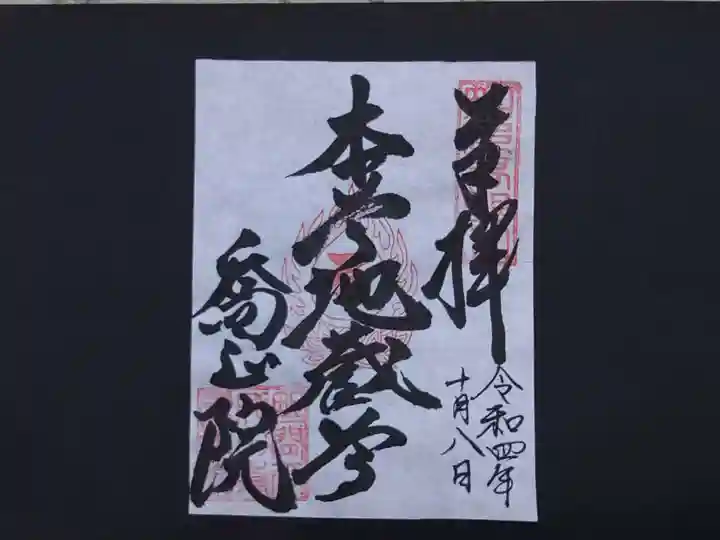 奉拝
令和四年
十月八日
本尊地蔵尊
喬正院